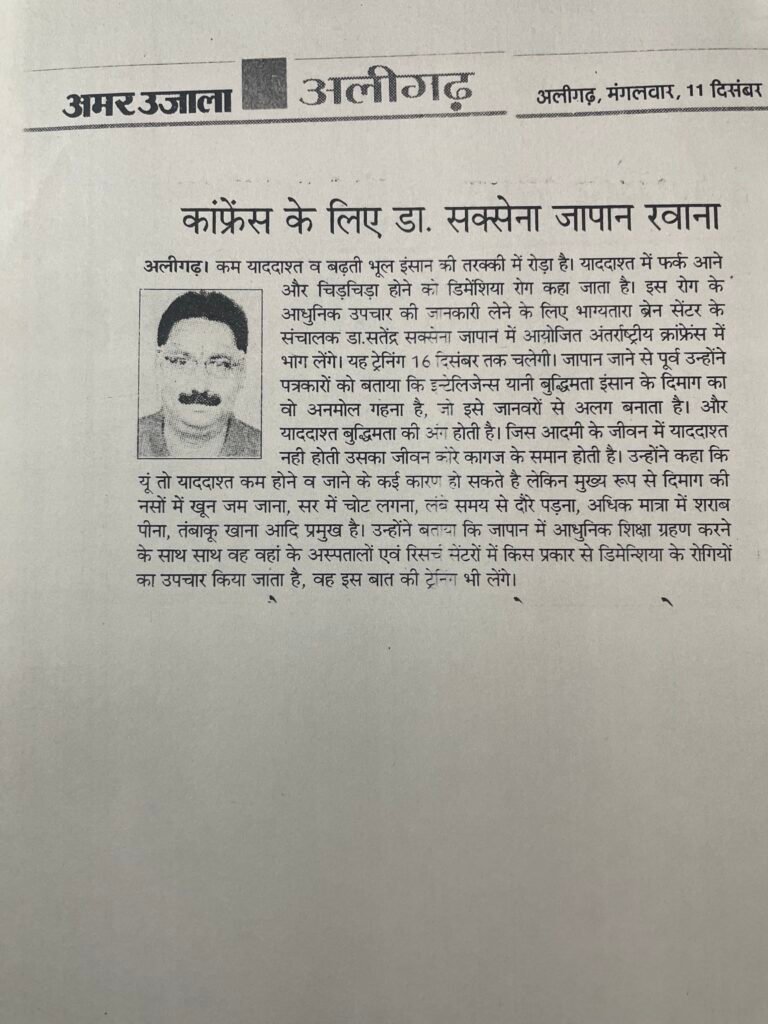 अमर उजाला अलीगढ़ अलीगढ़, मंगलवार, 11 दिसंबर
कांफ्रेंस के लिए डा. सक्सेना जापान रवाना
अलीगढ़। कम याददाश्त व बढ़ती भूल इंसान की तरक्की में रोड़ा है। याददाश्त में फर्क आने
और चिड़चिड़ा होने को डिमेंशिया रोग कहा जाता है। इस रोग के
आधुनिक उपचार की जानकारी लेने के लिए भाग्यतारा ब्रेन सेंटर के
संचालक डा.सतेंद्र सक्सेना जापान में आयोजित अंतर्राष्ट्रीय क्रांफ्रेंस में
भाग लेंगे। यह ट्रेनिंग 16 दिसंबर तक चलेगी। जापान जाने से पूर्व उन्होंने
पत्रकारों को बताया कि इन्टेलिजेन्स यानी बुद्धिमता इंसान के दिमाग का
वो अनमोल गहना है, जो इसे जानवरों से अलग बनाता है। और
याददाश्त बुद्धिमता की अंग होती है। जिस आदमी के जीवन में याददाश्त
नही होती उसका जीवन कोरे कागज के समान होती है। उन्होंने कहा कि
यूं तो याददाश्त कम होने व जाने के कई कारण हो सकते है लेकिन मुख्य रूप से दिमाग की
नसों में खून जम जाना, सर में चोट लगना, लंबे समय से दौरे पड़ना, अधिक मात्रा में शराब
पीना, तंबाकू खाना आदि प्रमुख है। उन्होंने बताया कि जापान में आधुनिक शिक्षा ग्रहण करने
के साथ साथ वह वहां के अस्पतालों एवं रिसर्च सेंटरों में किस प्रकार से डिमेन्शिया के रोगियों
का उपचार किया जाता है, वह इस बात की ट्रेनिंग भी लेंगे।